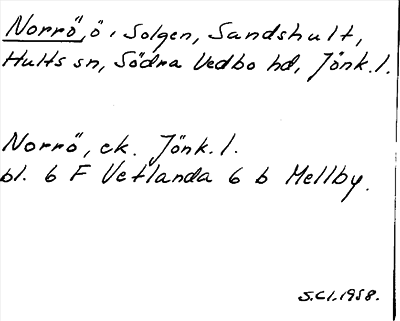 Norrö, ö i Solgen, Sandshult,
Hults sn, Södra Vedbo hd, Jönk.l.
Norrö, ek. Jönk.l.
bl. 6 F Vetlanda 6 b Mellby.
S.Cl.1958.